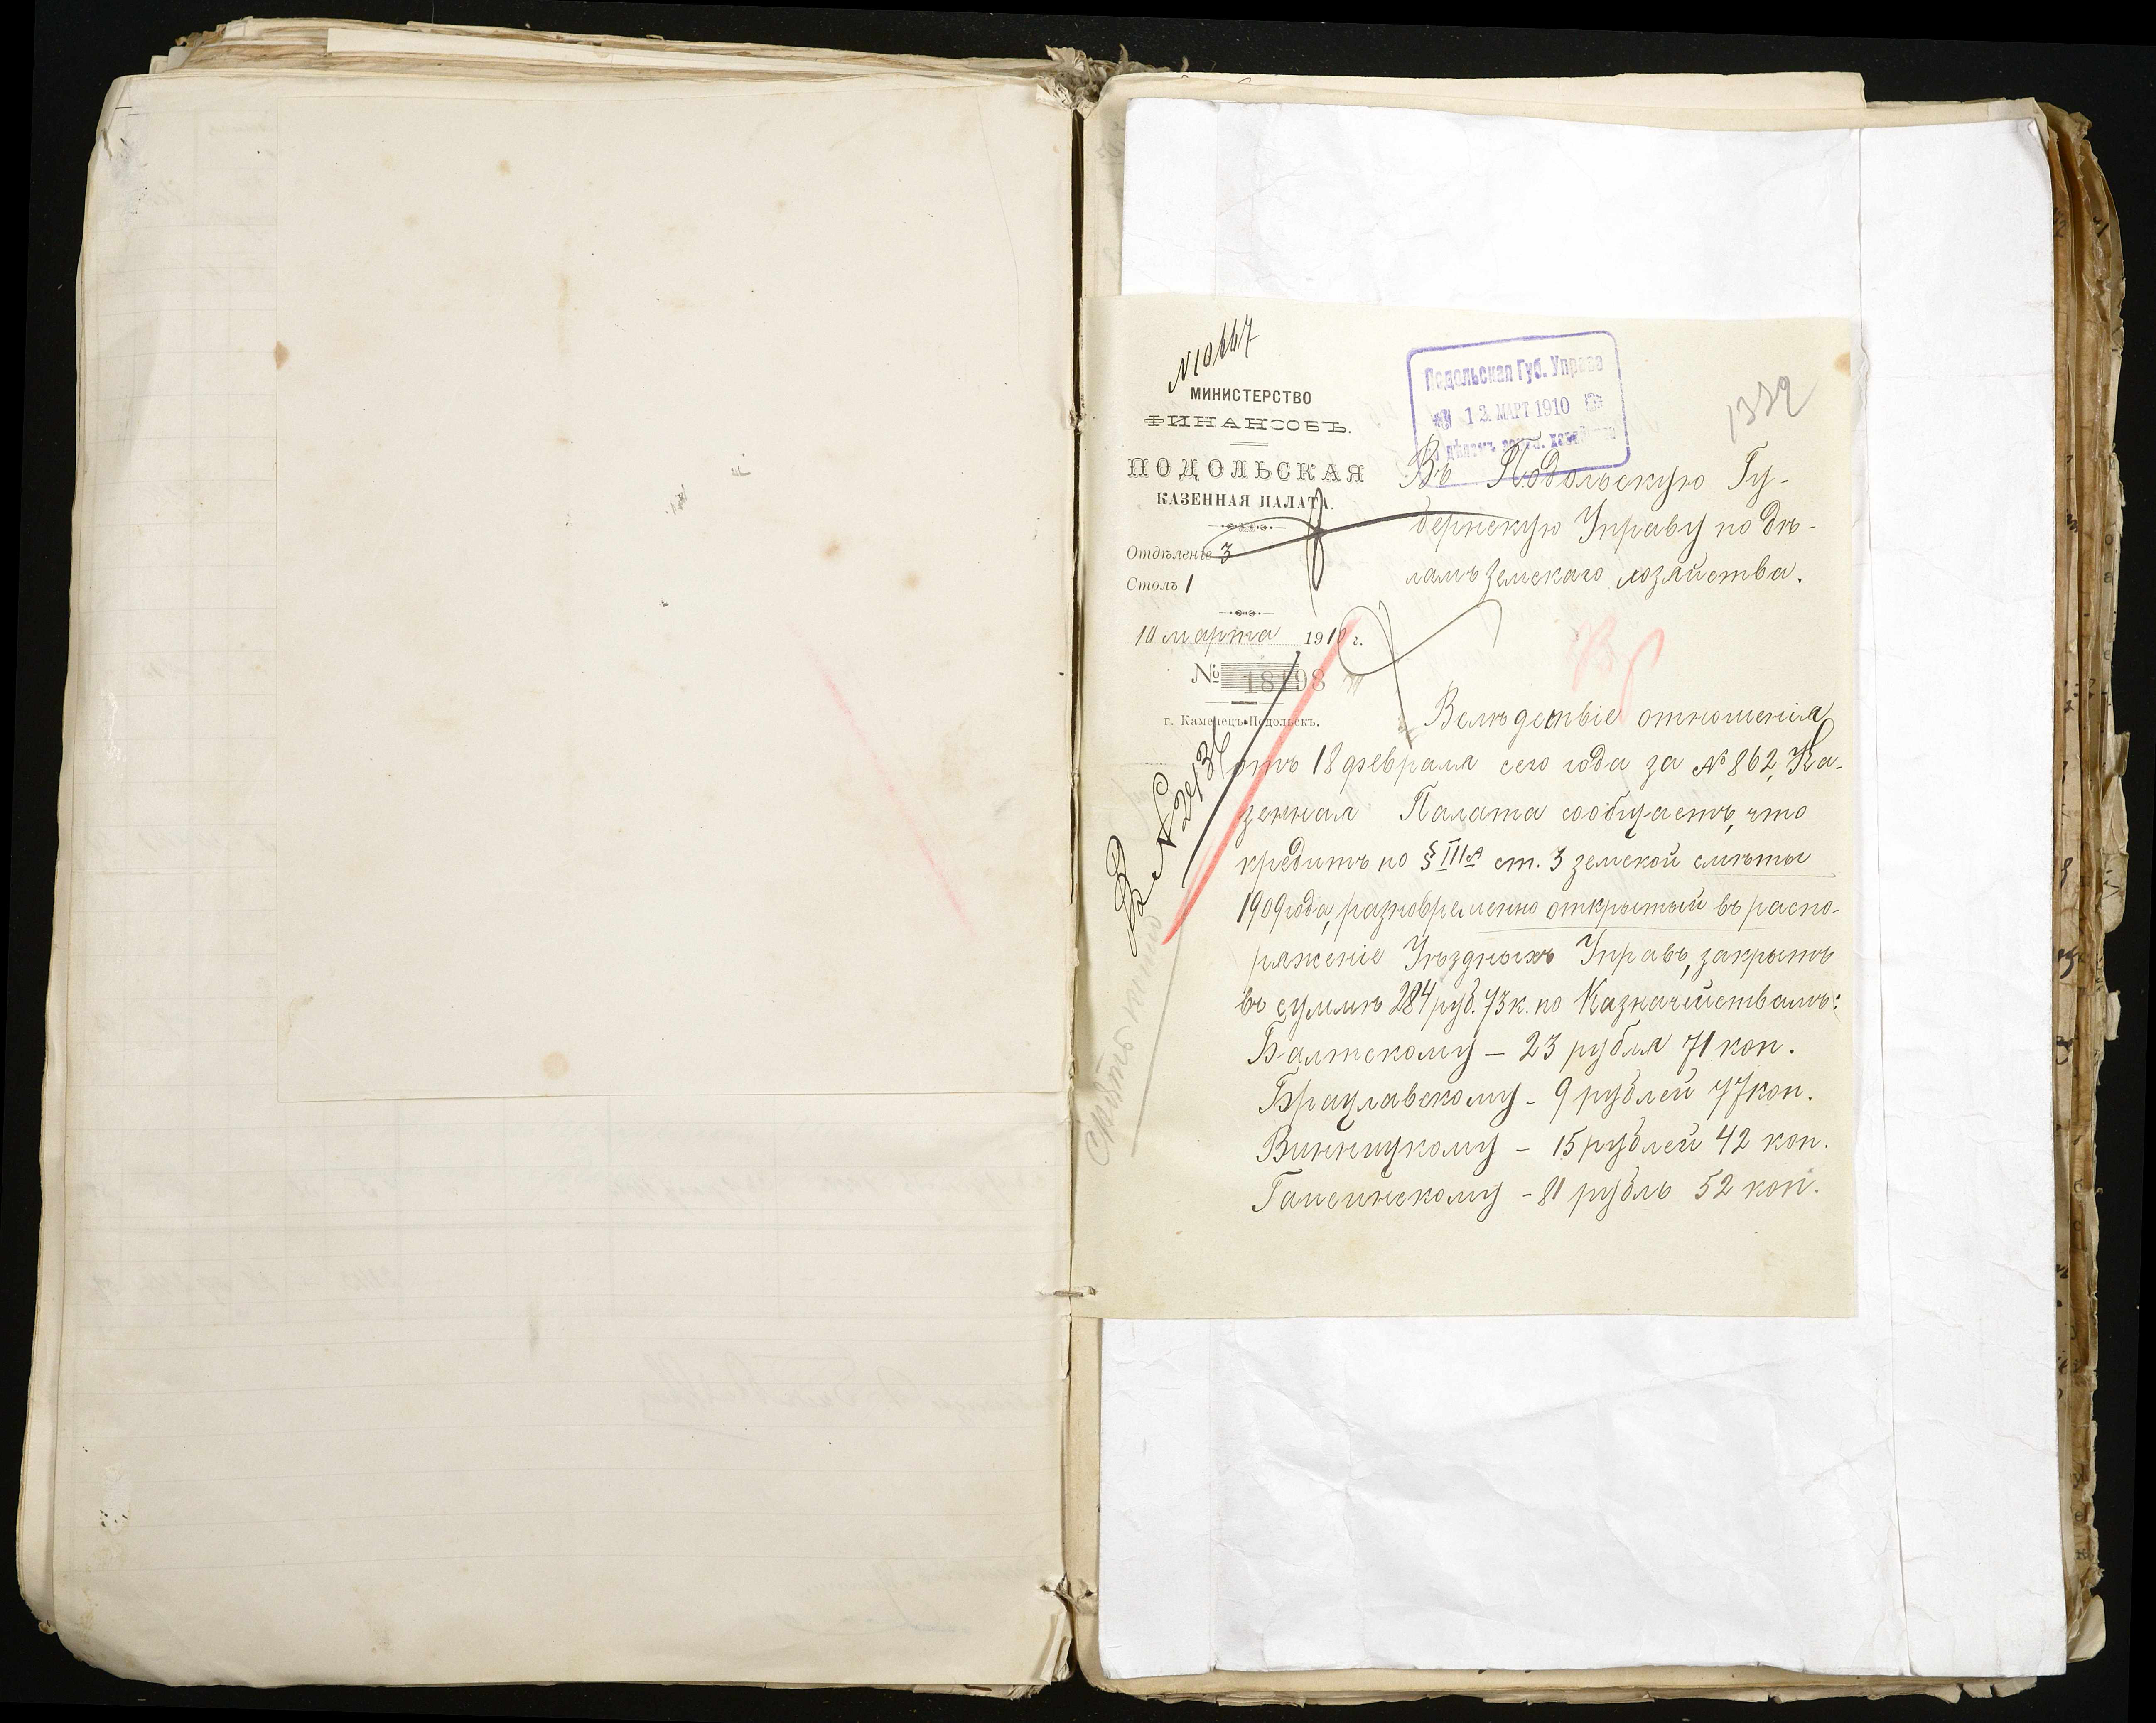 N 10667
МИНИСТЕРСТВО
ФИНАНСОВЪ.
ПОДОЛЬСКАЯ
КАЗЕННАЯ ПАЛАТА.
Отдѣленіе 3
Столъ 1
10 марта 1910 г.
№ 18198
г. Каменецъ-Подольскъ.
Подольская Губ. Управа
13. МАРТ 1910
Въ Подольскую Гу-
бернскую Управу по дѣ-
ламъ земскаго хозяйства.
Вслѣдствіе отношенія
отъ 18 февраля сего года за № 862, Ка-
зенная Палата сообщаетъ, что
кредитъ по § III ст. 3 земской смѣты
1909 года, разновременно открытый въ распо-
ряженіе Уѣздныхъ Управъ, закрытъ
въ суммѣ 284 руб. 73 к. по Казначействамъ:
Балтскому – 23 рубля 71 коп.
Брацлавскому – 9 рублей 77 коп.
Винницкому – 15 рублей 42 коп.
Гайсинскому – 81 рубль 52 коп.